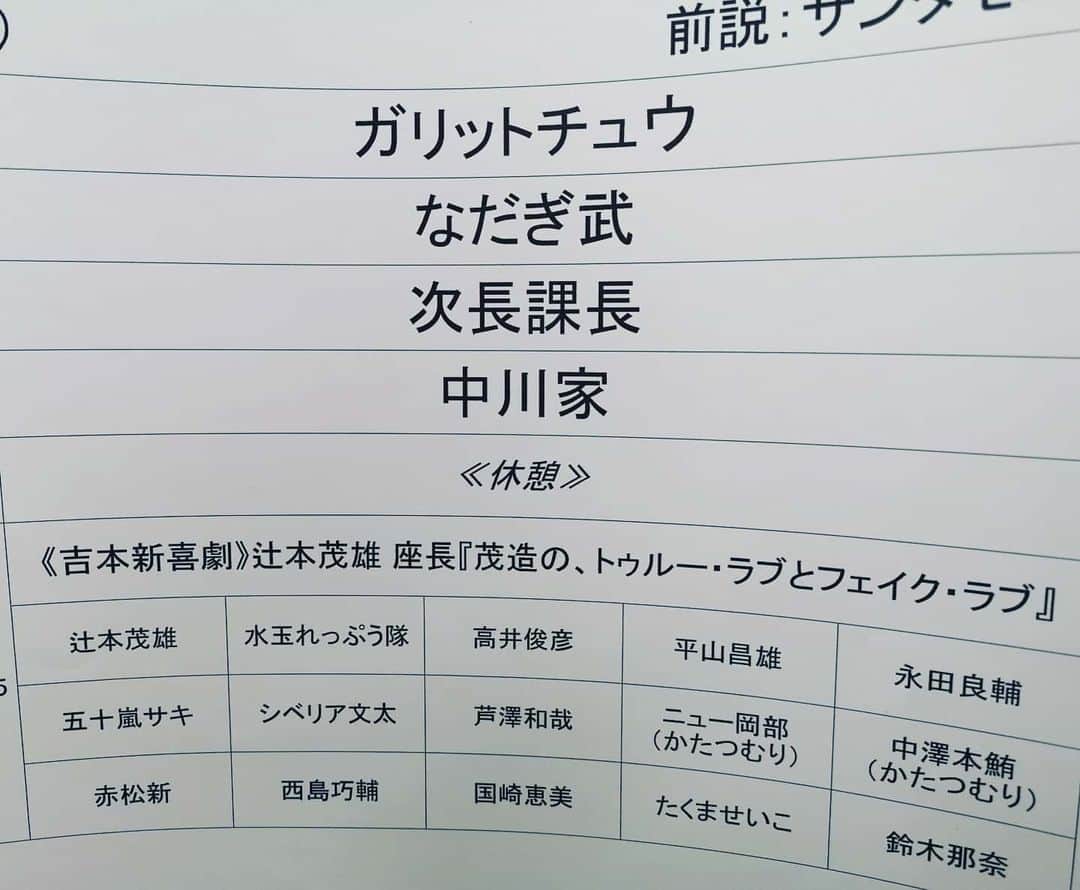 前説：サンダー
ガリットチュウ
なだぎ武
次長課長
中川家
≪休憩≫
《吉本新喜劇》辻本茂雄 座長『茂造の、トゥルー・ラブとフェイク・ラブ』
辻本茂雄 水玉れっぷう隊 高井俊彦 平山昌雄 永田良輔
五十嵐サキ シベリア文太 芦澤和哉 ニュー岡部 中澤本鮪
（かたつむり） （かたつむり）
赤松新 西島巧輔 国崎恵美 たくませいこ 鈴木那奈